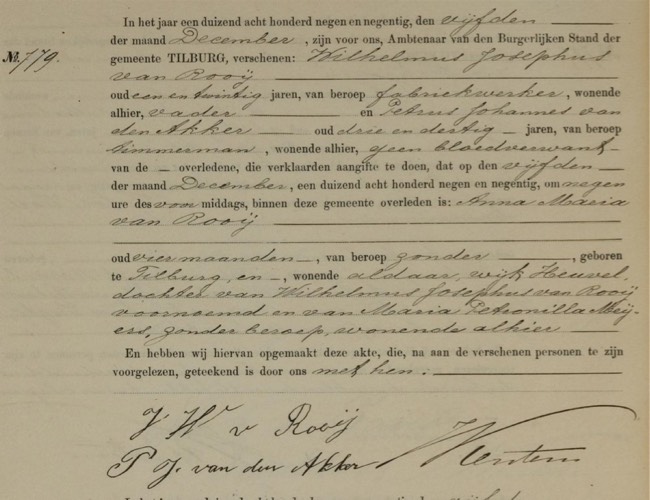 In het jaar een duizend acht honderd negen en negentig, den vijfden
der maand December, zijn voor ons, Ambtenaar van den Burgerlijken Stand der
No. 779. gemeente TILBURG, verschenen: Wilhelmus Josephus
van Rooij
oud een en twintig jaren, van beroep fabriekwerker, wonende
alhier, vader en Petrus Johannes van
den Akker oud drie en dertig jaren, van beroep
timmerman, wonende alhier, geen bloedverwant
van de overledene, die verklaarden aangifte te doen, dat op den vijfden
der maand December, een duizend acht honderd negen en negentig, om negen
ure des voormiddags, binnen deze gemeente overleden is: Anna Maria
van Rooij
oud vier maanden, van beroep zonder, geboren
te Tilburg, en, wonende aldaar, wijk Heuvel,
dochter van Wilhelmus Josephus van Rooij
voornoemd en van Maria Petronilla Meij-
ers, zonder beroep, wonende alhier
En hebben wij hiervan opgemaakt deze akte, die, na aan de verschenen personen te zijn
voorgelezen, geteekend is door ons met hen.
v Rooij
P J. van den Akker